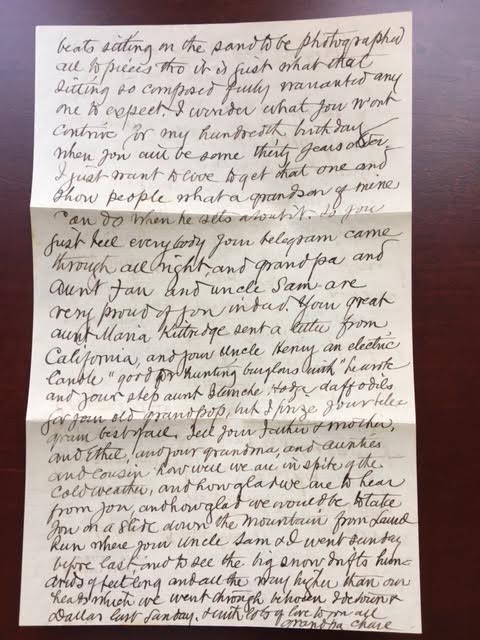 beats sitting on the sand to be photographed
all to pieces tho it is just what that
sitting so composed fully warranted any
one to expect. I wonder what you wont
contrive for my hundredth birthday
when you will be some thirty years older
I just want to live to get that one and
show people what a grandson of mine
can do when he sets about it. So you
just tell everybody your telegram came
through all right and grandpa and
aunt Fan and uncle Sam are
very proud of you indeed. Your great
aunt Maria Kittridge sent a letter from
California, and your Uncle Henry an electric
candle "good for hunting burglars with" he wrote
and your step aunt Blanche daffodils
for your old grandpop, but I prize your tele
gram best of all. Tell your Father & mother,
and Ethel, and your grandma, and aunties
and cousin how well we are in spite of the
cold weather, and how glad we are to hear
from you, and how glad we would be to take
you on a slide down the mountain from Laurel
Run where your Uncle Sam & I went Sunday
before last, and to see the big snow drifts hun-
dreds of feet long and all the way higher than our
heads which we went through between &
Dallas last Sunday. With lots of love to you all
Grandpa Chase